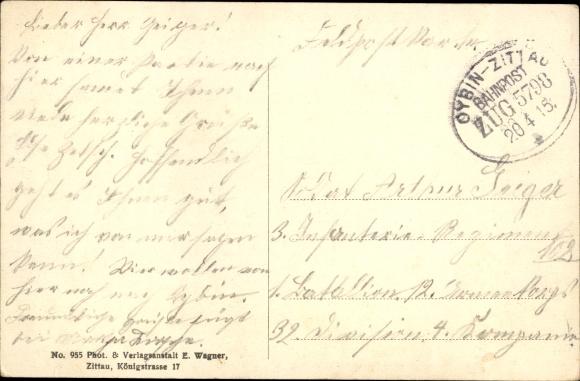 Lieber Herr Geiger!
Von einer Partie nach
hier sendet Ihnen
viele herzliche Grüße
Hoffendlich
geht es Ihnen gut,
was ich von mir sagen
kann! Wir wollen von
hier noch nach Oybin.
Freundliche Grüße fügt
bei
No. 955 Phot. & Verlagsanstalt E. Wagner,
Zittau, Königstrasse 17
Feldpostkarte
OYBIN-ZITTAU
BAHNPOST
ZUG 5798
20 4 15.
Soldat Arthur Geiger
3. Infanterie-Regiment
102
1. Batallion
32. Division 4. Kompanie